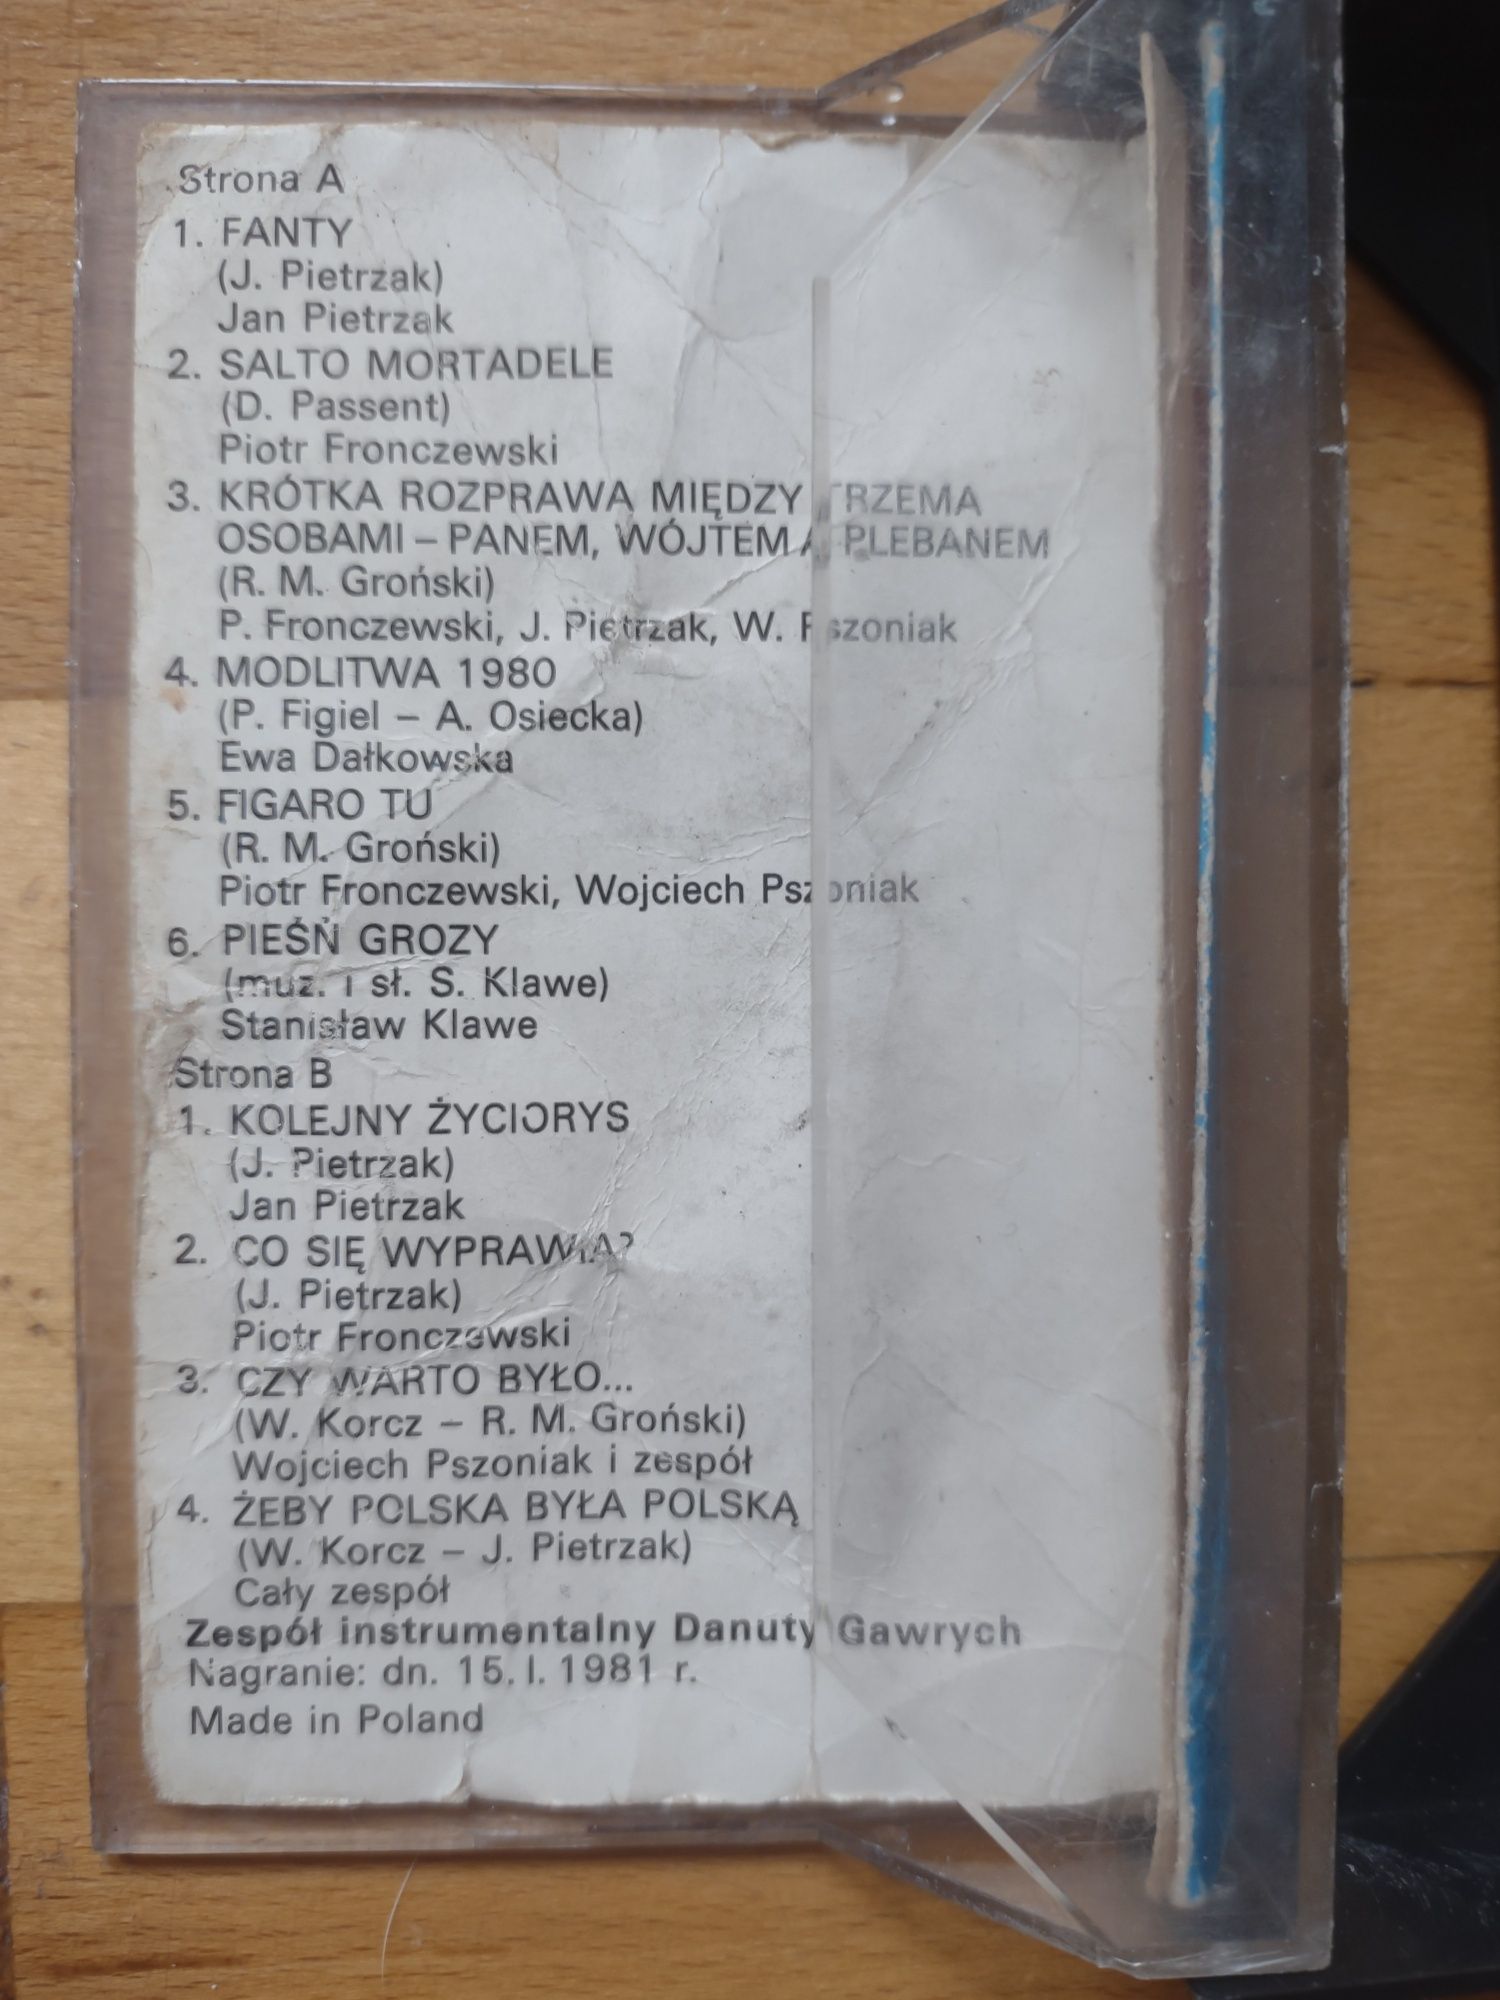 Strona A
1. FANTY
(J. Pietrzak)
Jan Pietrzak
2. SALTO MORTADELE
(D. Passent)
Piotr Fronczewski
3. KRÓTKA ROZPRAWA MIĘDZY TRZEMA
OSOBAMI – PANEM, WÓJTEM A PLEBANEM
(R. M. Groński)
P. Fronczewski, J. Pietrzak, W. Pszoniak
4. MODLITWA 1980
(P. Figiel – A. Osiecka)
Ewa Dałkowska
5. FIGARO TU
(R. M. Groński)
Piotr Fronczewski, Wojciech Pszoniak
6. PIEŚŃ GROZY
(muz. i sł. S. Klawe)
Stanisław Klawe
Strona B
1. KOLEJNY ŻYCIORYS
(J. Pietrzak)
Jan Pietrzak
2. CO SIĘ WYPRAWIA?
(J. Pietrzak)
Piotr Fronczewski
3. CZY WARTO BYŁO...
(W. Korcz – R. M. Groński)
Wojciech Pszoniak i zespół
4. ŻEBY POLSKA BYŁA POLSKĄ
(W. Korcz – J. Pietrzak)
Cały zespół
Zespół instrumentalny Danuty Gawrych
Nagranie: dn. 15. I. 1981 r.
Made in Poland